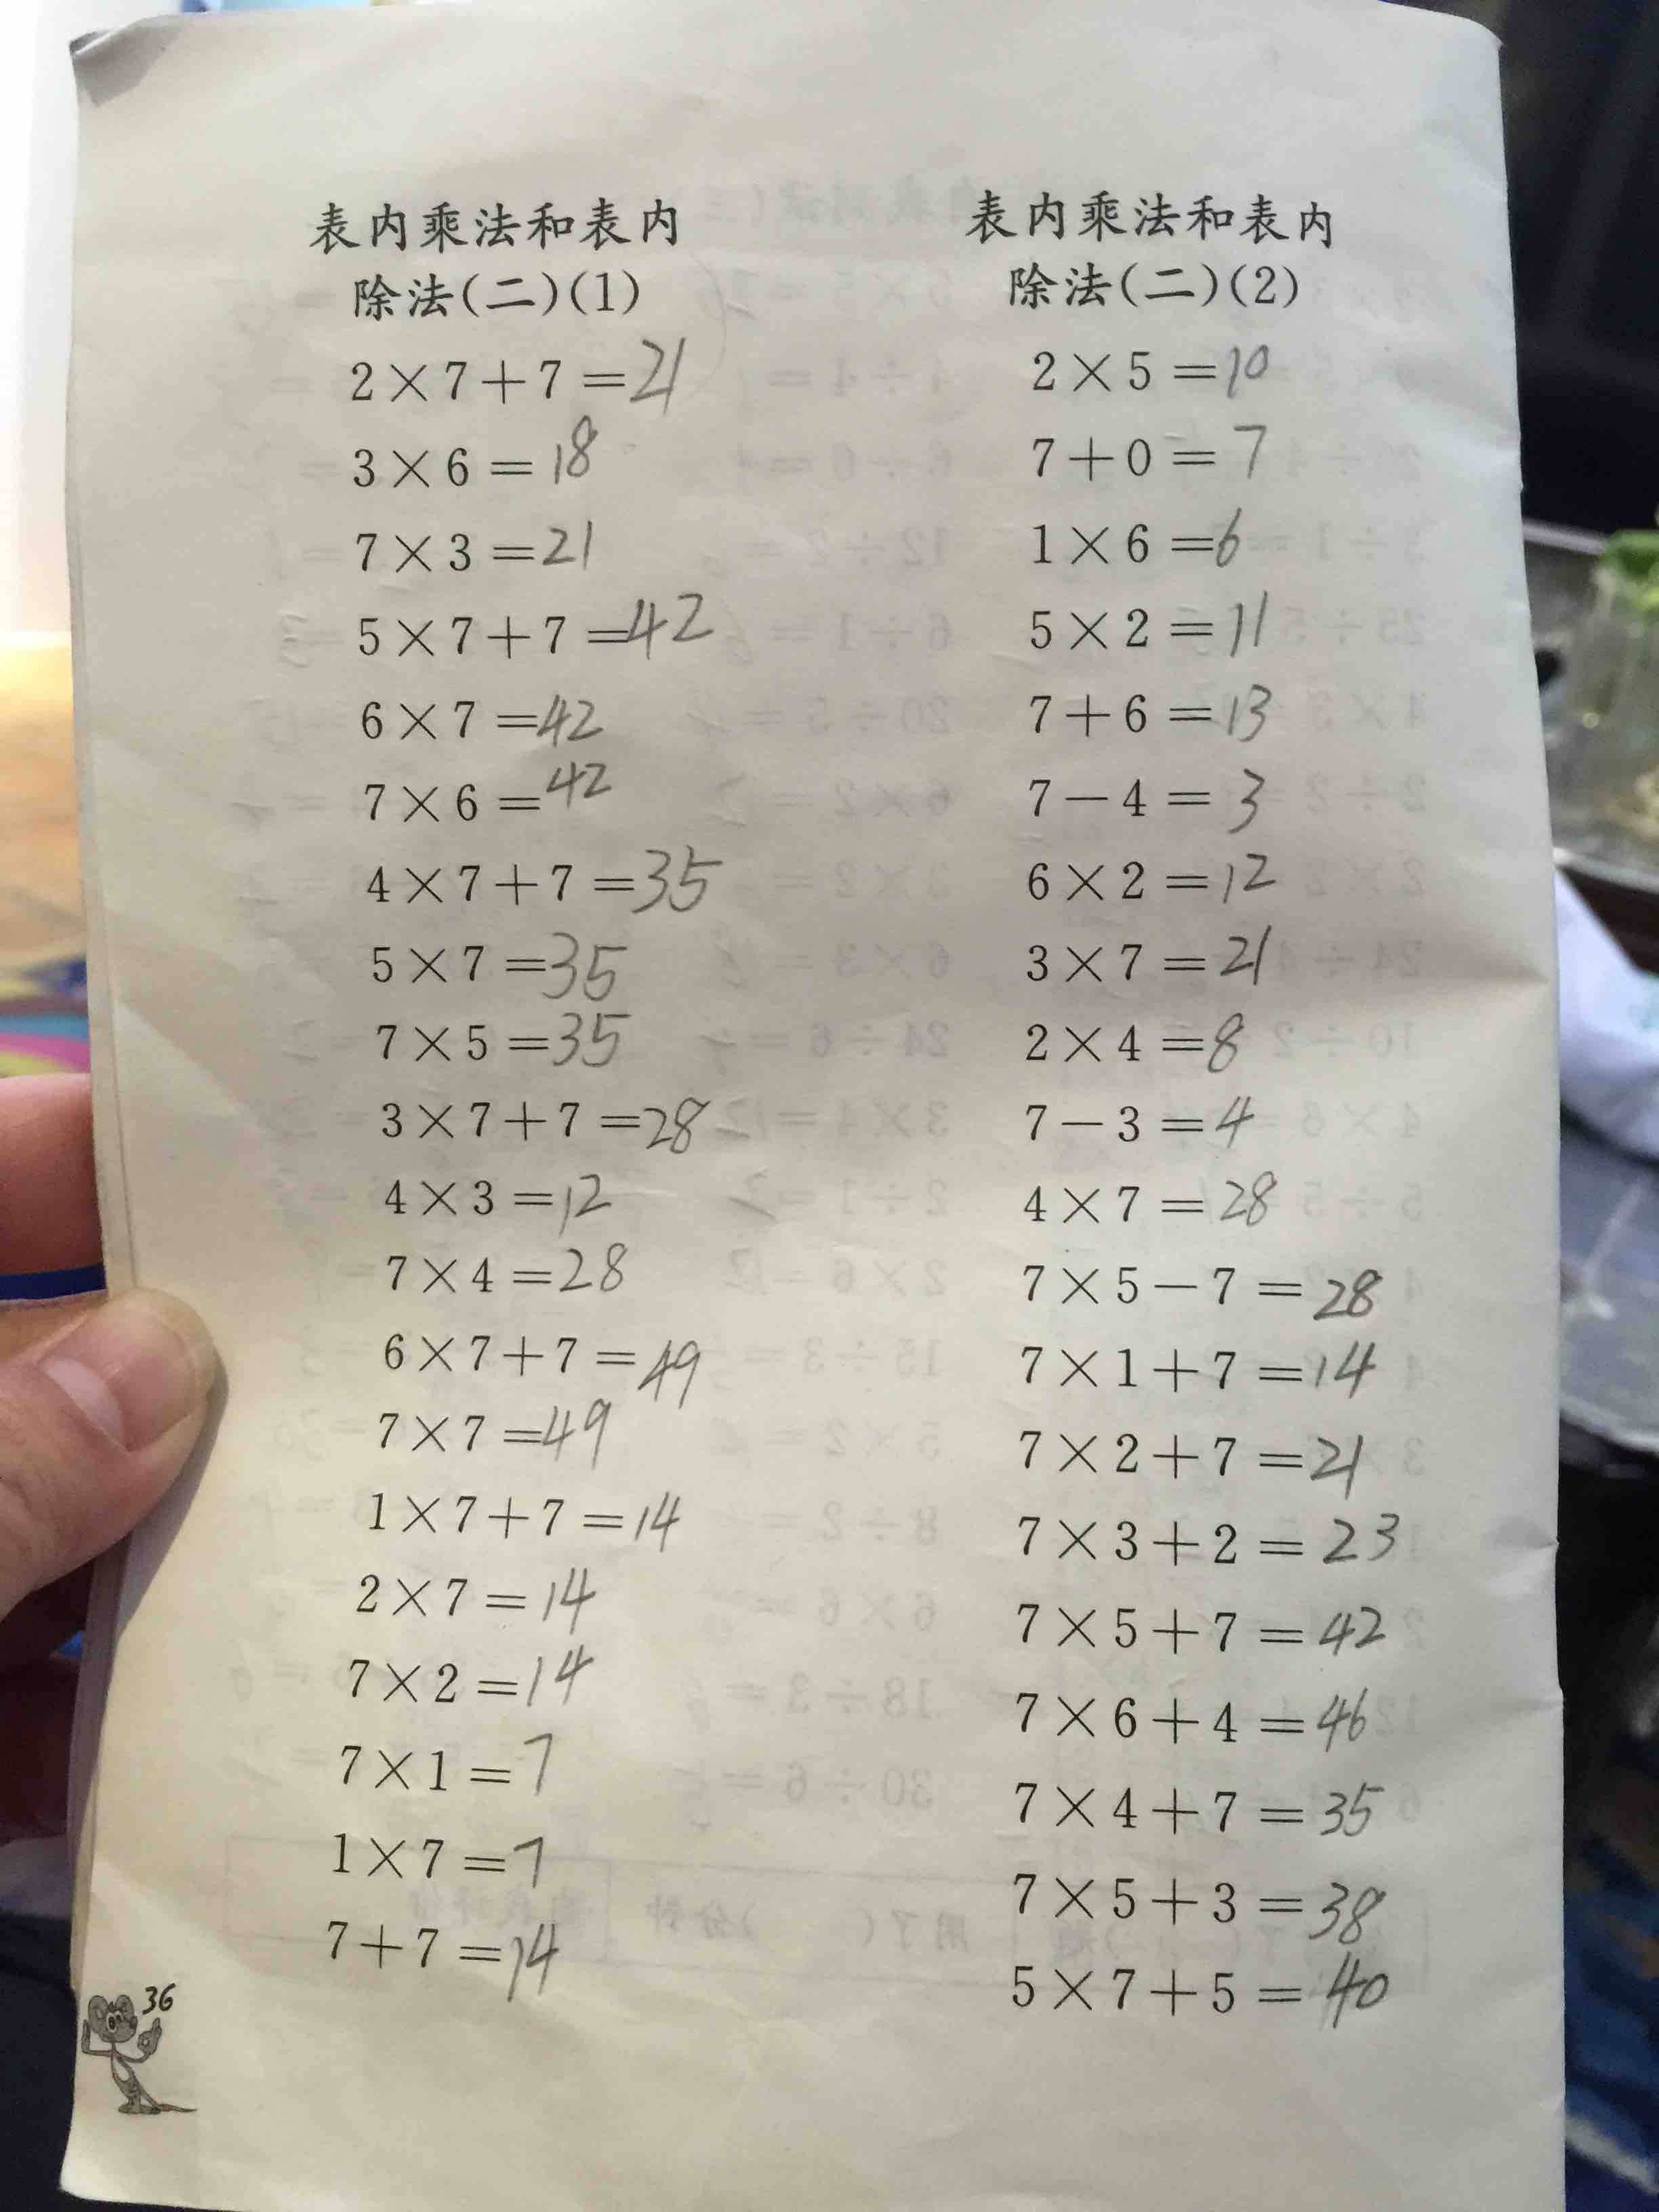 表内乘法和表内
除法(二)(1)
2×7+7=21
3×6=18
7×3=21
5×7+7=42
6×7=42
7×6=42
4×7+7=35
5×7=35
7×5=35
3×7+7=28
4×3=12
7×4=28
6×7+7=49
7×7=49
1×7+7=14
2×7=14
7×2=14
7×1=7
1×7=7
7+7=14
36
表内乘法和表内
除法(二)(2)
2×5=10
7+0=7
1×6=6
5×2=11
7+6=13
7-4=3
6×2=12
3×7=21
2×4=8
7-3=4
4×7=28
7×5-7=28
7×1+7=14
7×2+7=21
7×3+2=23
7×5+7=42
7×6+4=46
7×4+7=35
7×5+3=38
5×7+5=40